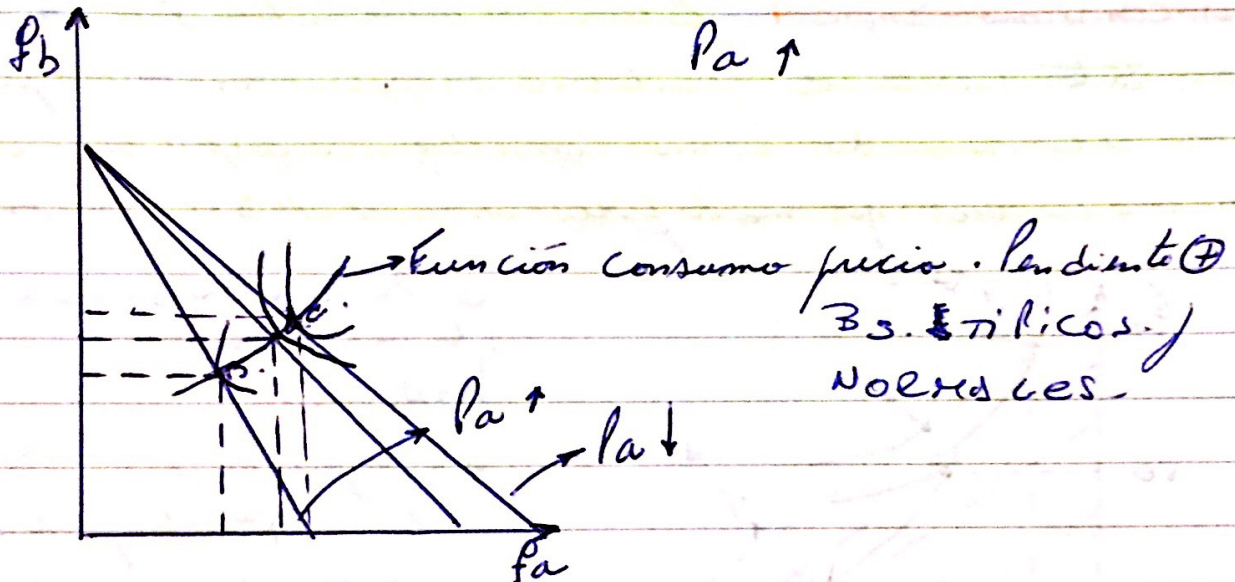 Pa ↑
qb
Función consumo precio. Pendiente ⊕
Bs. típicos y
Normales.
C.
B.
Pa ↑
Pa ↓
qa